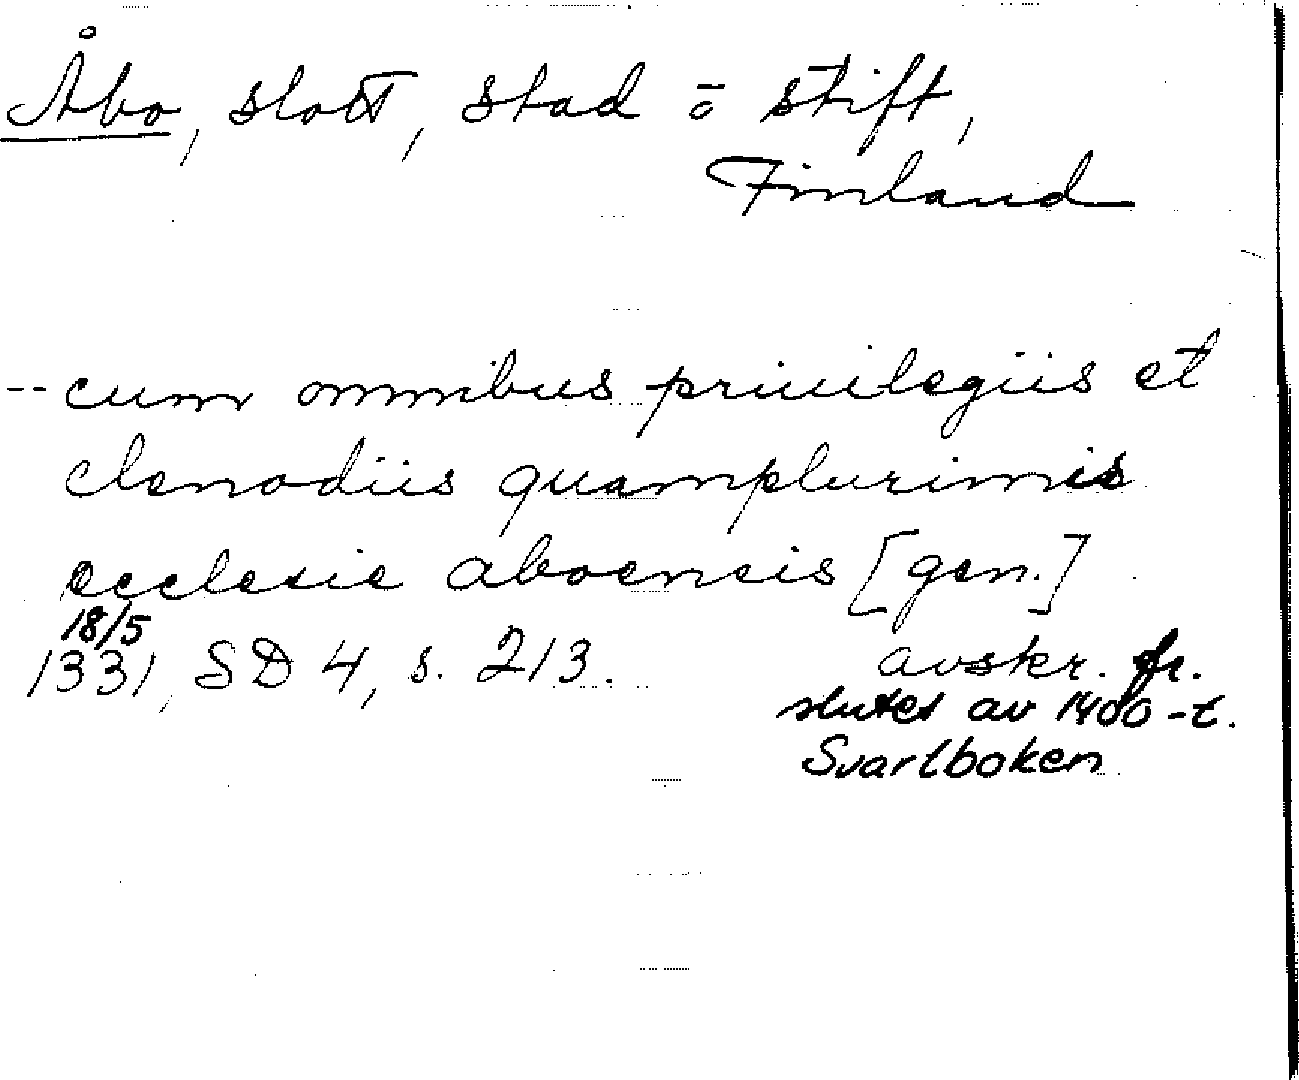 Åbo, slott, stad o stift,
Finland
-- cum omnibus priuilegiis et
clenodiis quamplurimis
ecclesie aboensis [gen.]
18/5
1331, SD 4, s. 213. avskr. fr.
slutet av 1400-t.
Svartboken